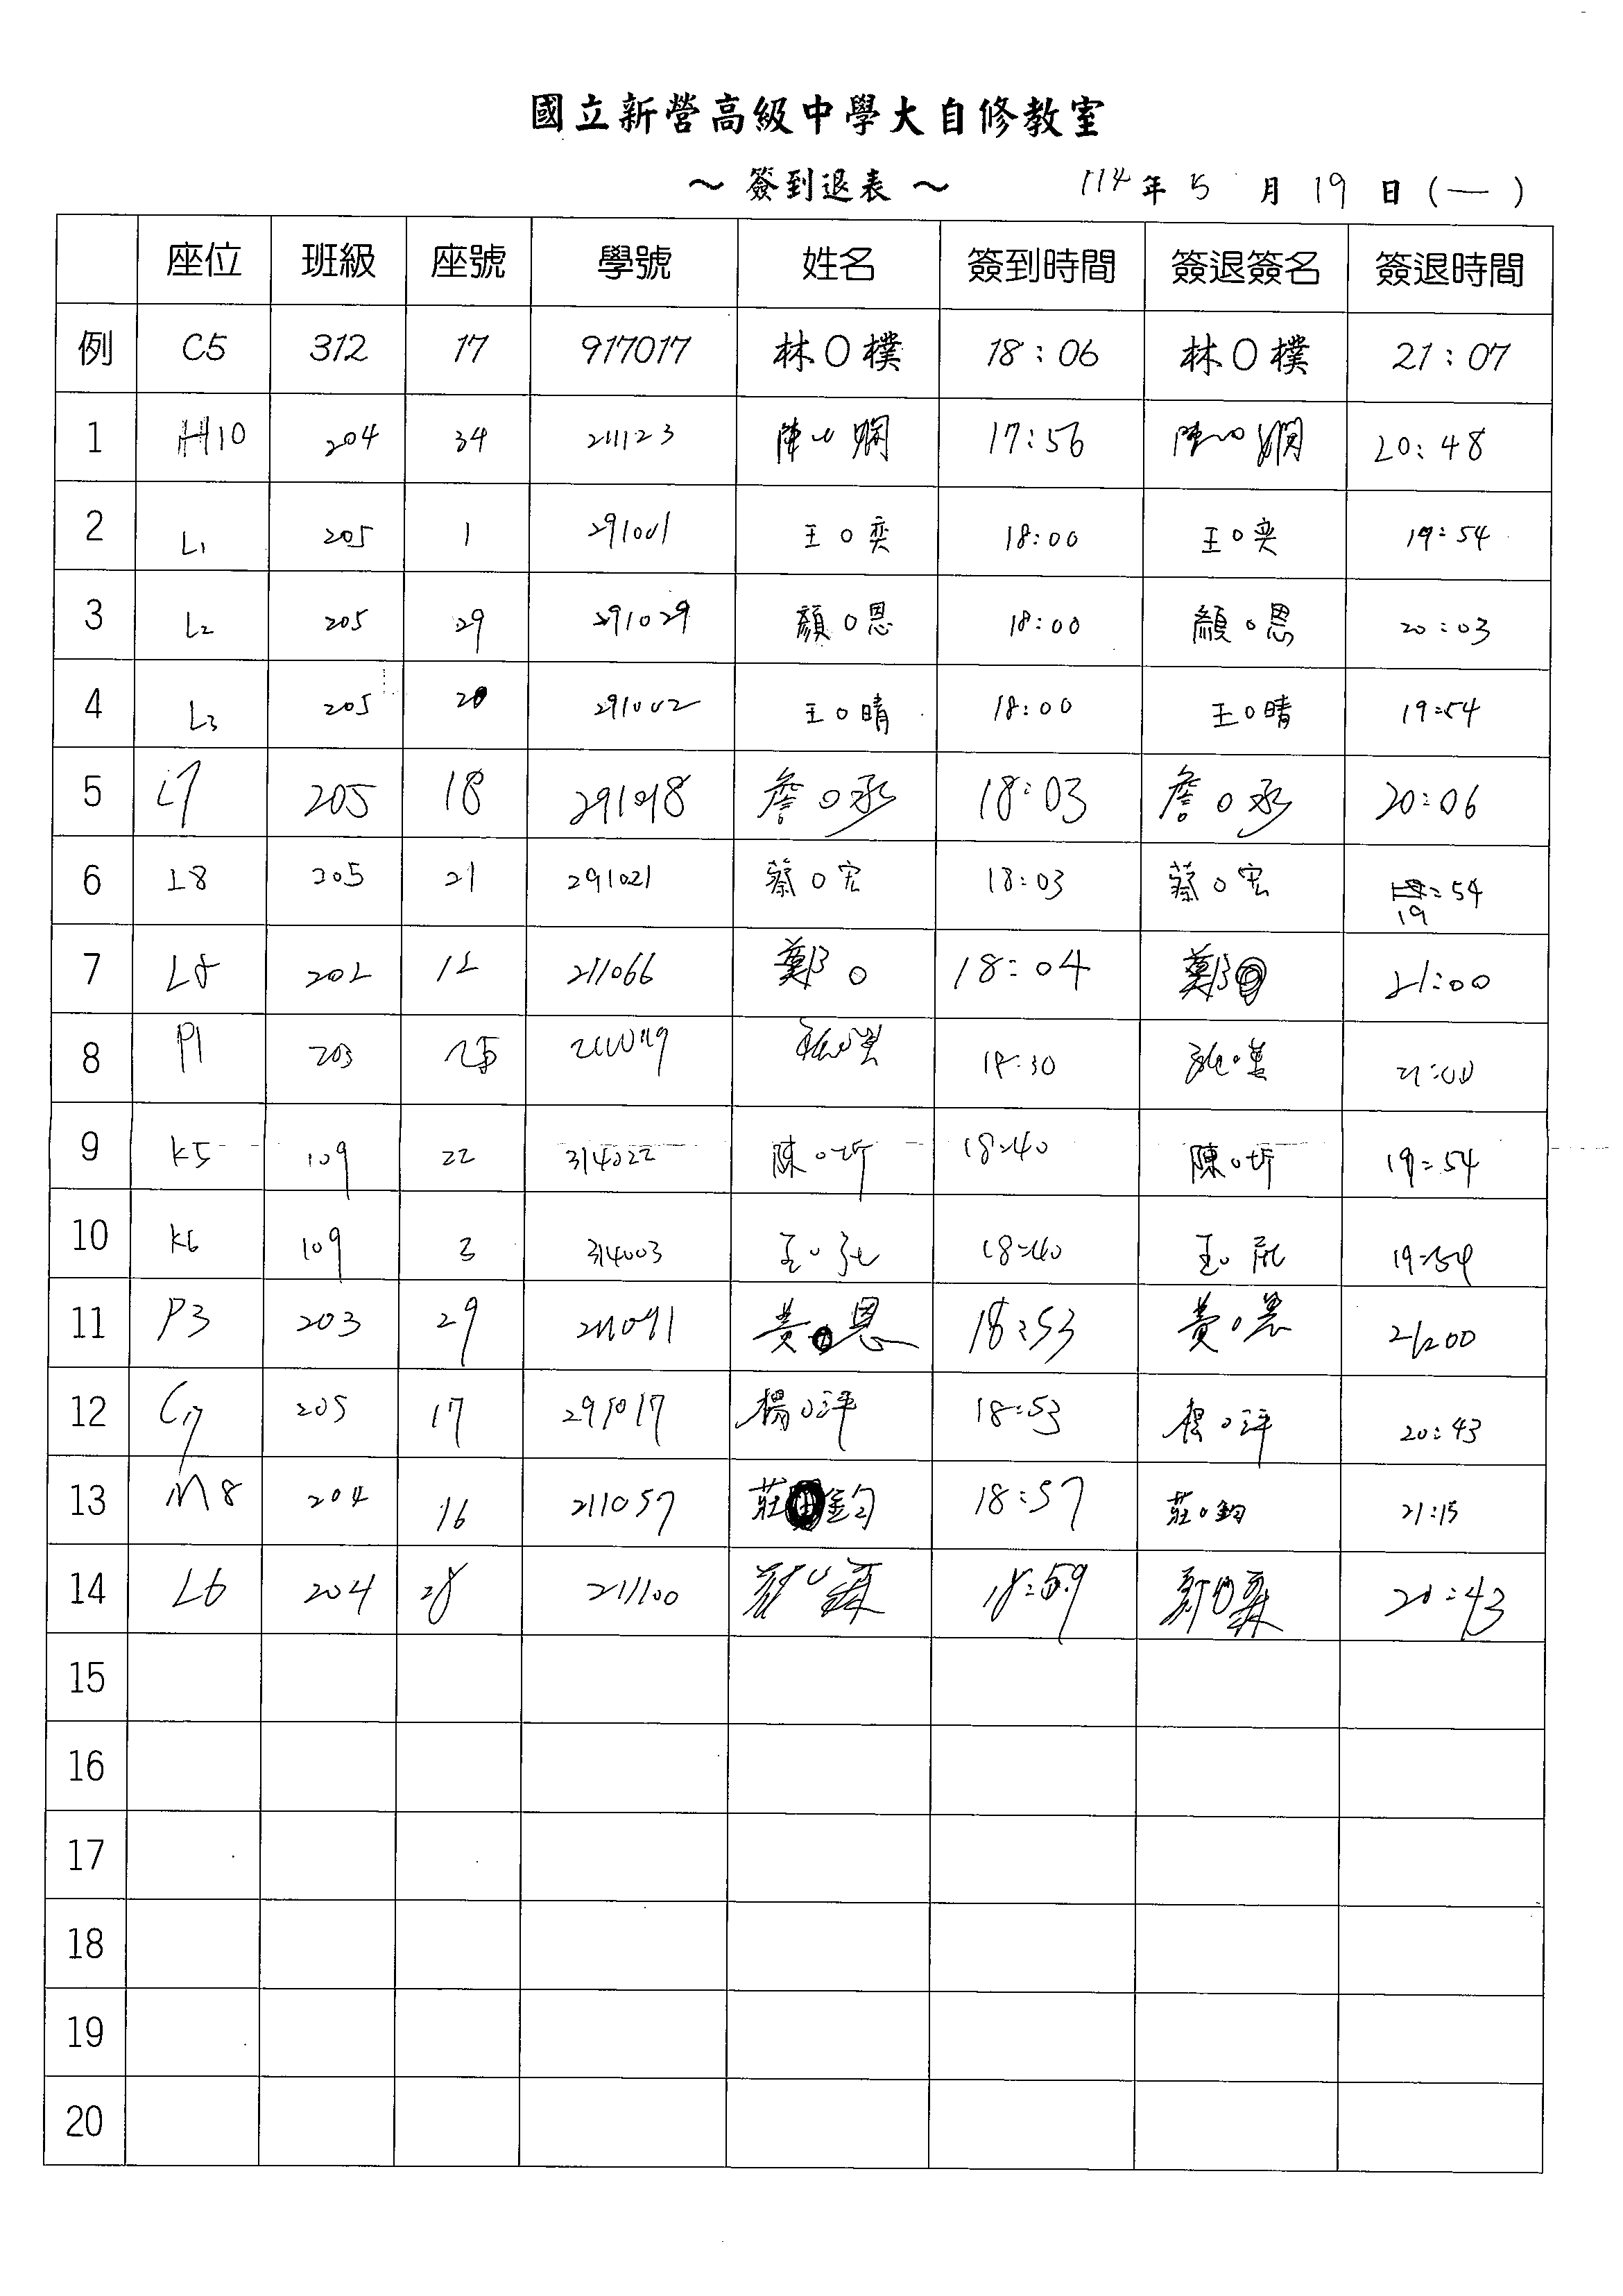 國立新營高級中學大自修教室
～ 簽到退表 ～ 114 年 5 月 19 日 (一)
座位 班級 座號 學號 姓名 簽到時間 簽退簽名 簽退時間
例 C5 312 17 917017 林O樸 18:06 林O樸 21:07
1 H10 204 34 211123 陳O嫻 17:56 陳O嫻 20:48
2 L1 205 1 291001 王O奕 18:00 王O奕 19:54
3 L2 205 29 291029 顏O恩 18:00 顏O恩 20:03
4 L3 205 291002 王O晴 18:00 王O晴 19:54
5 L7 205 18 291018 詹O丞 18:03 詹O丞 20:06
6 L8 205 21 291021 蔡O宏 18:03 蔡O宏 19:54
7 202 12 211066 鄭O 18:04 鄭 21:00
8 P1 203 21:00
9 K5 109 22 314022 陳O圻 18:40 陳O圻 19:54
10 K6 109 3 314003 王O 18:40 王O 19:54
11 P3 203 29 211091 黃O恩 18:53 黃O恩 21:00
12 205 17 291017 楊O萍 18:53 楊O萍 20:43
13 M8 204 16 211057 莊 鈞 18:57 莊O鈞 21:15
14 L6 204 28 211100 18:59 20:43
15
16
17
18
19
20